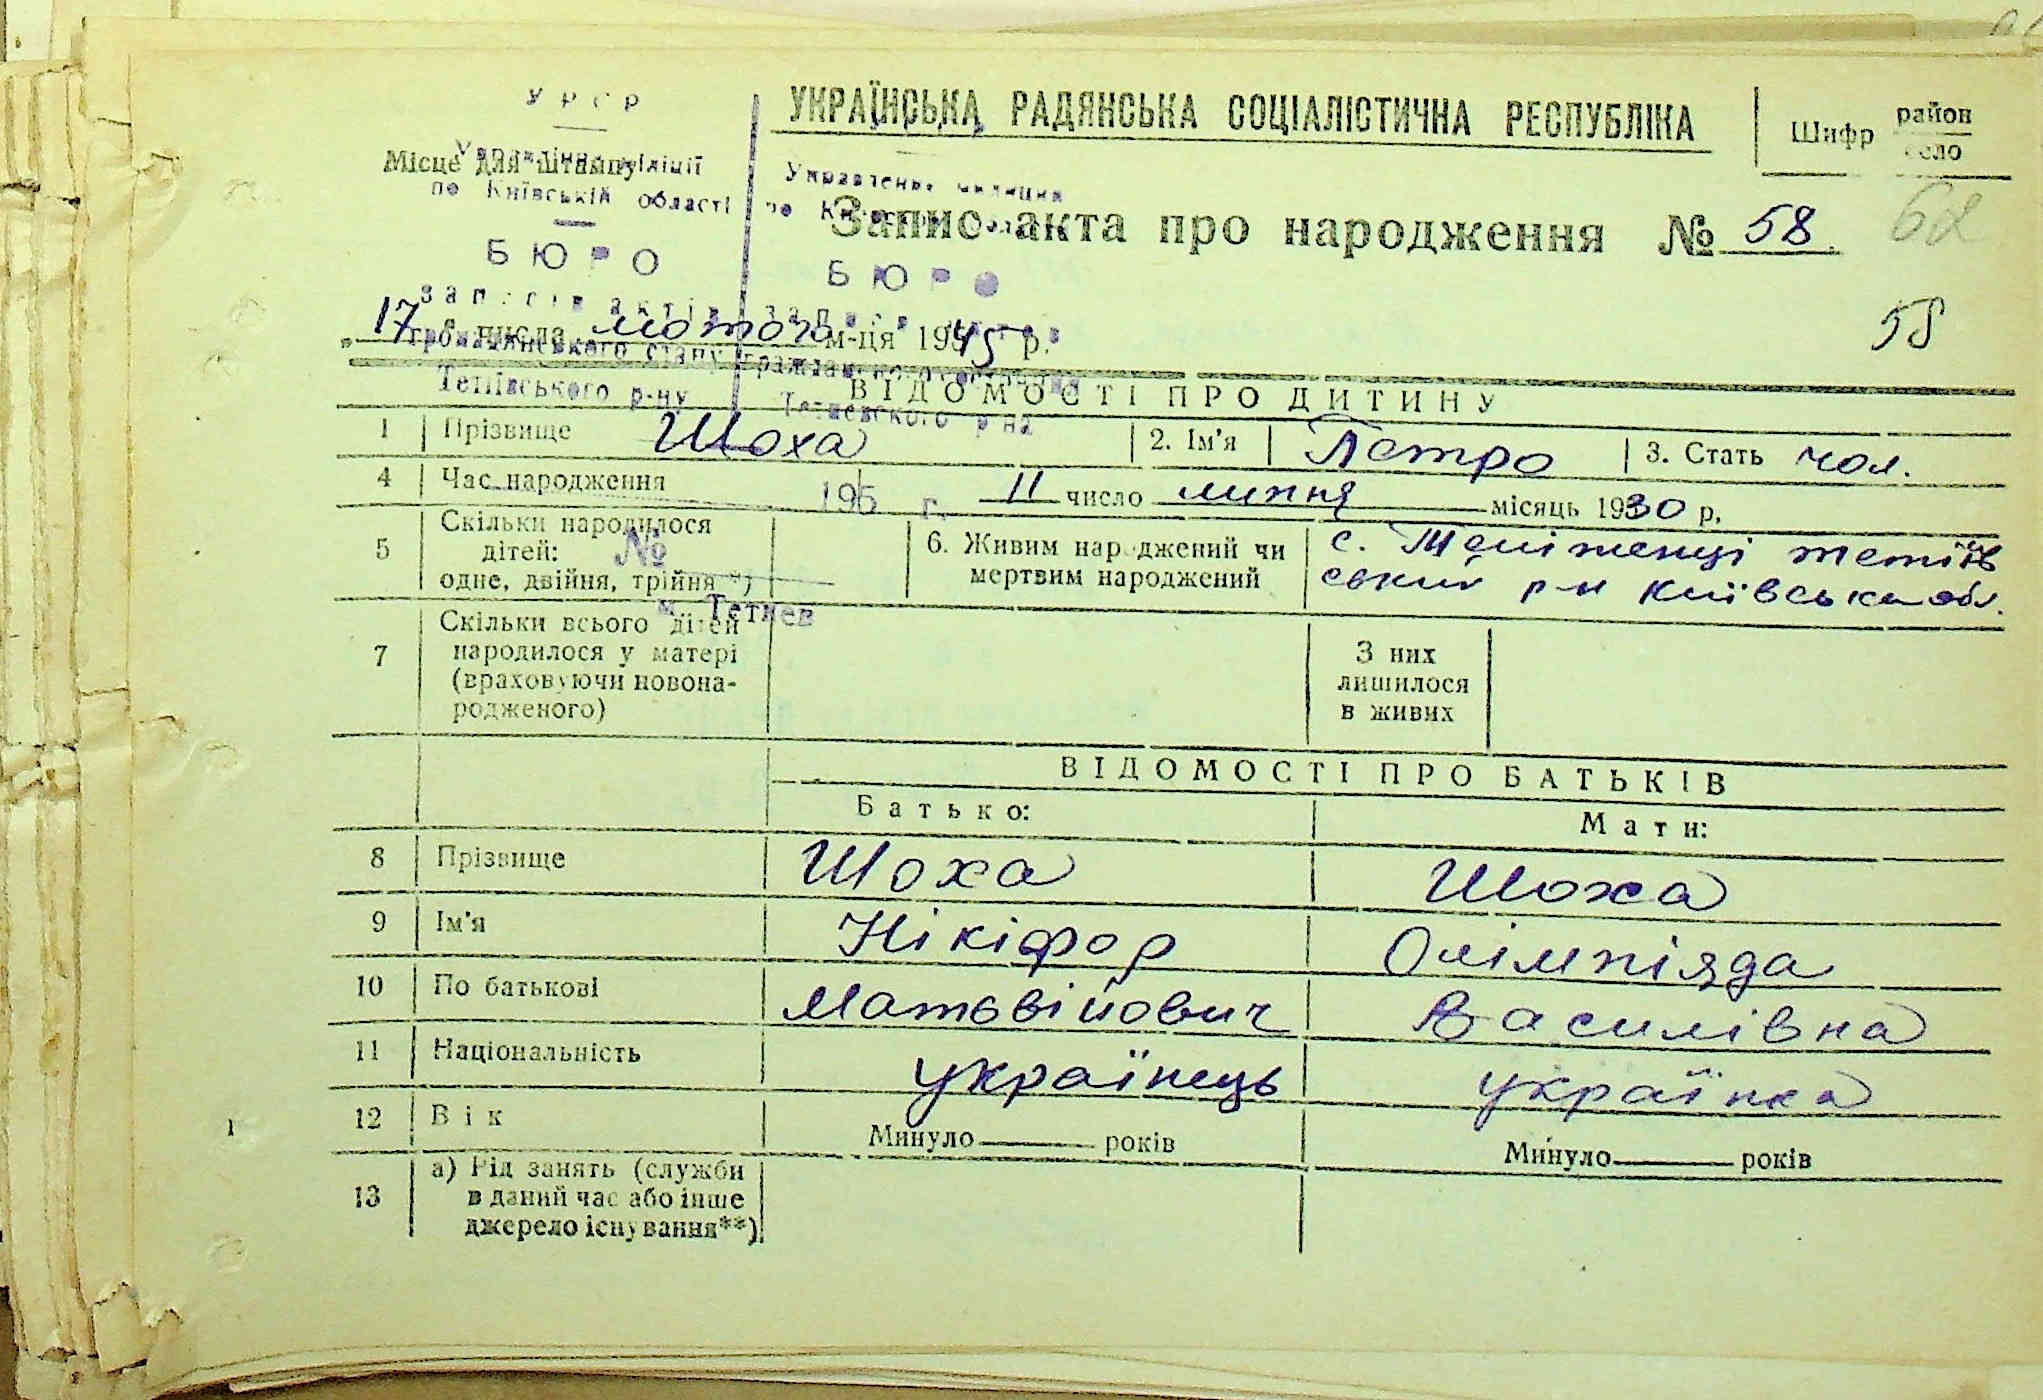 УРСР
УКРАЇНСЬКА РАДЯНСЬКА СОЦІАЛІСТИЧНА РЕСПУБЛІКА
Шифр район
село
Місце для штампу
Управління міліції
по Київській області
Управление милиции
по Киевской области
Запис акта про народження № 58.
62
БЮРО
БЮРО
записів актів
громадянського стану
Тетіївського р-ну
Тетиевского р-на
17 числа лютого м-ця 1945 р.
58
ВІДОМОСТІ ПРО ДИТИНУ
1 Прізвище Шоха 2. Ім'я Петро 3. Стать чол.
4 Час народження 11 число липня місяць 1930 р.
195 г.
5 Скільки народилося дітей: одне, двійня, трійня *)
№
м. Тетиев
6. Живим народжений чи мертвим народжений
с. Теліженці тетіїв
ський р-н Київська обл.
7 Скільки всього дітей народилося у матері (враховуючи новонародженого)
З них лишилося в живих
ВІДОМОСТІ ПРО БАТЬКІВ
Батько: Мати:
8 Прізвище Шоха Шоха
9 Ім'я Нікіфор Олімпіяда
10 По батькові Матвійович Василівна
11 Національність українець українка
12 Вік Минуло років Минуло років
13 а) Рід занять (служби в даний час або інше джерело існування**)